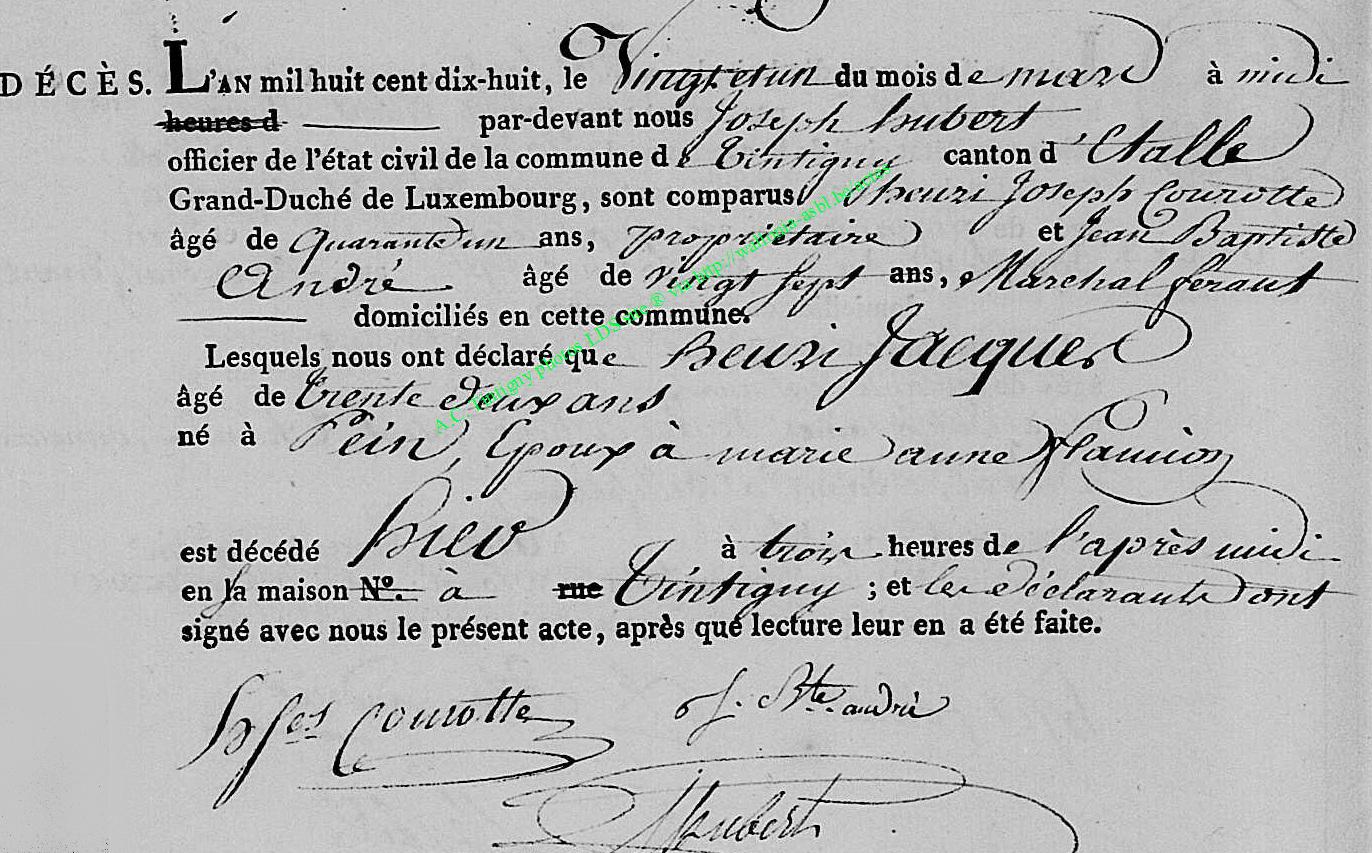 DÉCÈS. L'AN mil huit cent dix-huit, le Vingt et un du mois de mars à midi
heures d par-devant nous Joseph hubert
officier de l'état civil de la commune de Tintigny canton d'Etalle
Grand-Duché de Luxembourg, sont comparus henri Joseph Courotte
âgé de quarante un ans, propriétaire et Jean Baptiste
André âgé de vingt sept ans, Marchal feraut
domiciliés en cette commune.
Lesquels nous ont déclaré que henri Jacques
âgé de trente deux ans
né à Pein, Epoux à marie anne flamion
est décédé hier à trois heures de l'après midi
en sa maison N°. à rue Tintigny ; et les déclarants ont
signé avec nous le présent acte, après que lecture leur en a été faite.
h Jos Courotte J. Bte andré
J hubert
A.C. Tintigny photos LDS via http://wallonia-asbl.be